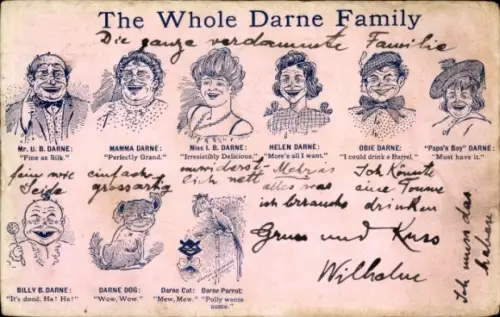 The Whole Darne Family
Die ganze verdammte Familie
Mr. U. B. DARNE:
"Fine as Silk."
MAMMA DARNE:
"Perfectly Grand."
Miss I. B. DARNE:
"Irresistibly Delicious."
HELEN DARNE:
"More's all I want."
OBIE DARNE:
"I could drink a Barrel."
"Papa's Boy" DARNE:
"Must have it."
fein wie
Seide
einfach
grossartig
lich nett
Mehr
alles was
ich brauche
Ich könnte
eine Tonne
drinken
Ich muss das
haben
Gruss und Kuss
BILLY B. DARNE:
"It's dood. Ha! Ha!"
DARNE DOG:
"Wow, Wow."
Darne Cat:
"Mew, Mew."
Darne Parrot:
"Polly wants
some."